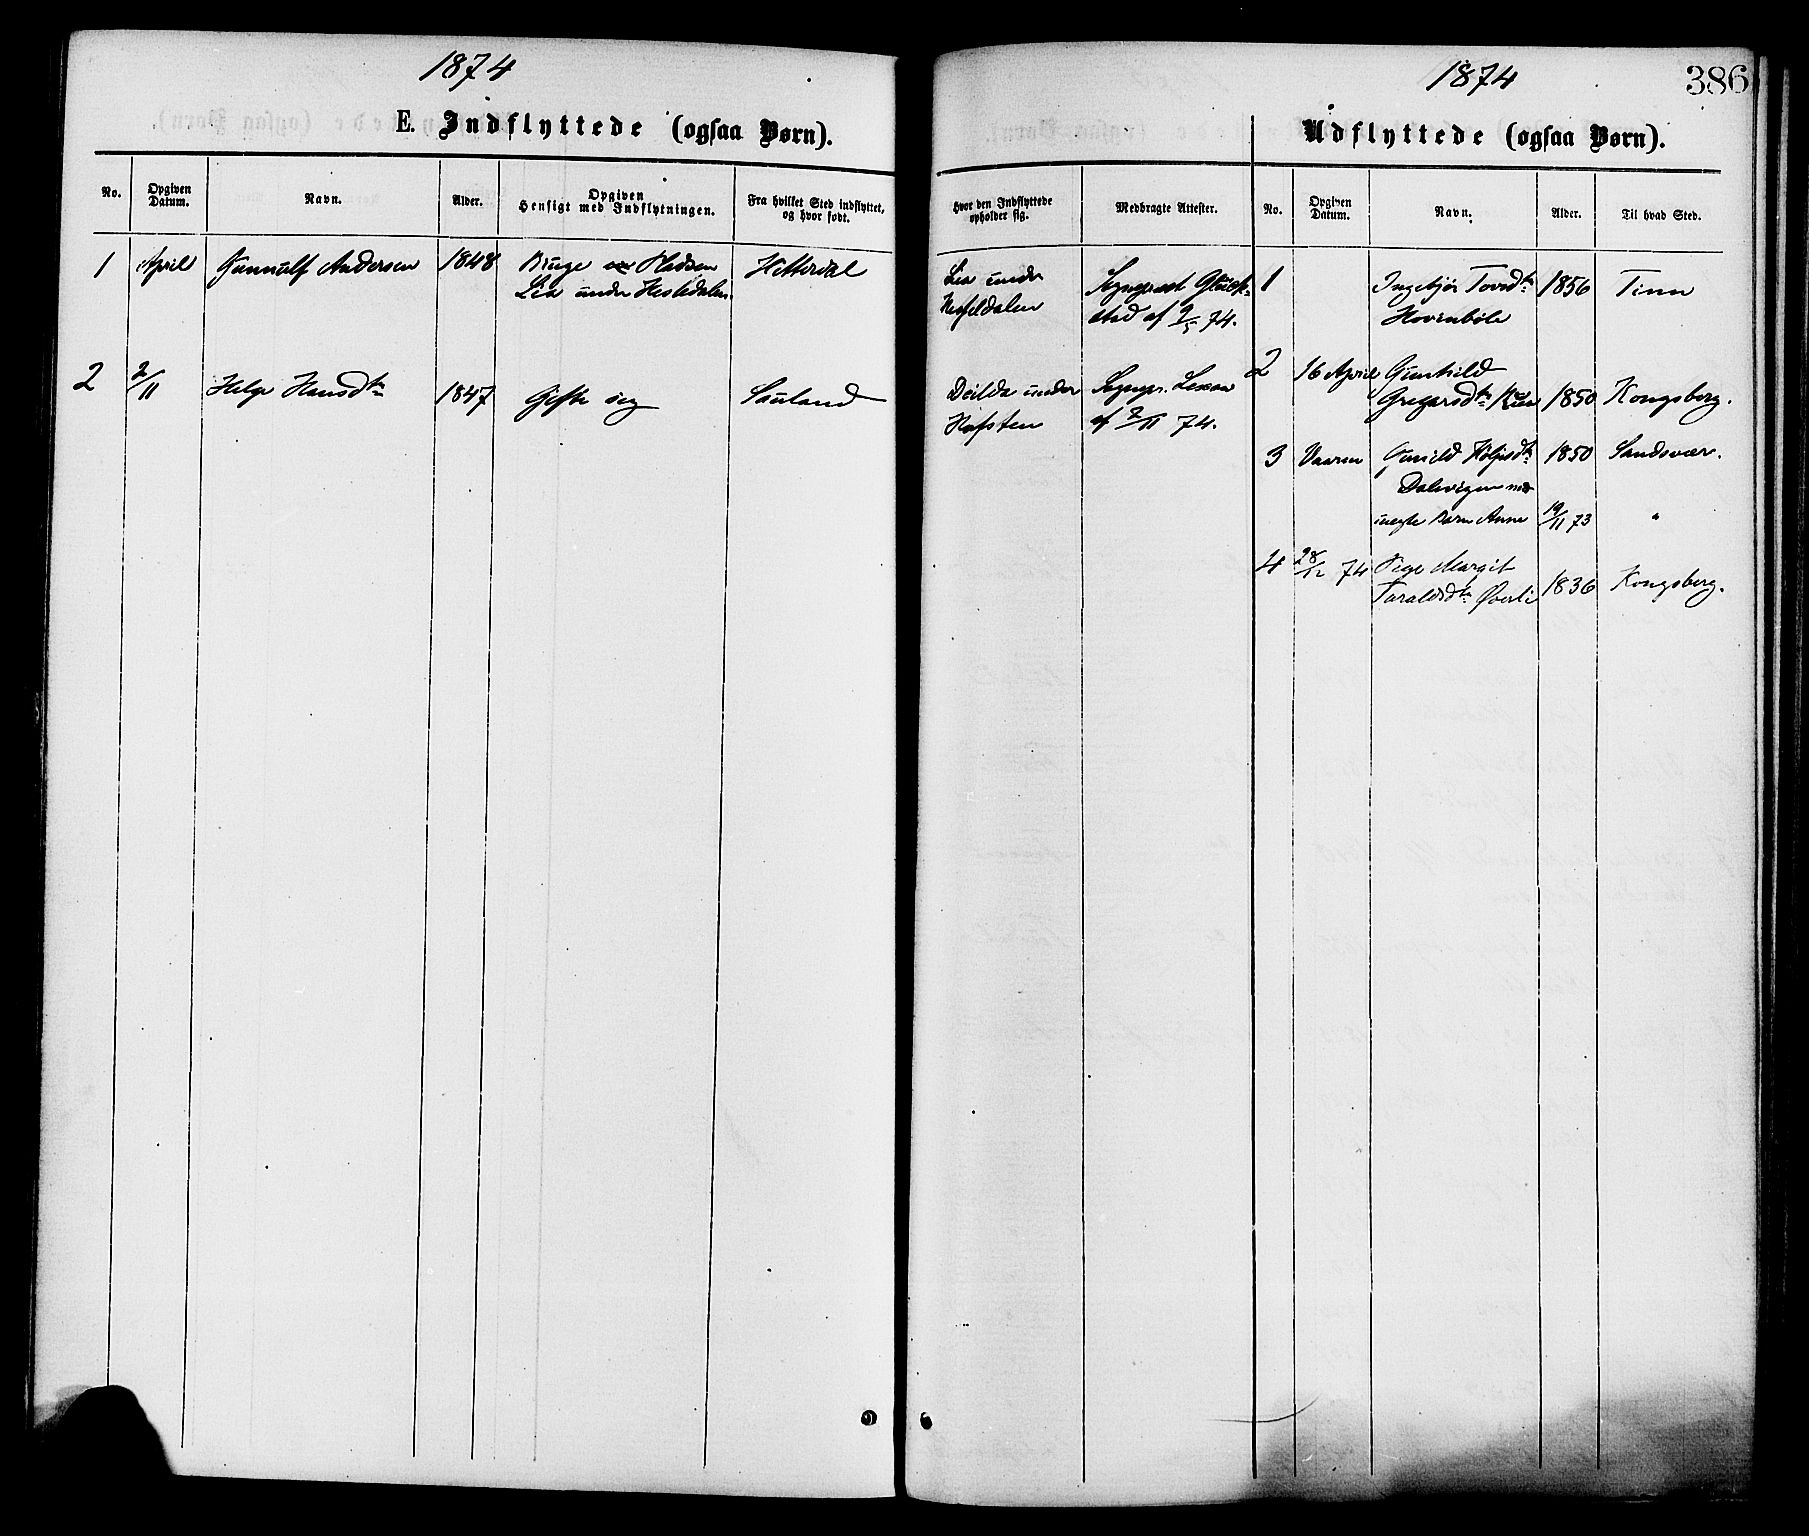 1874
E. Indflyttede (ogsaa Børn).
No.
Opgiven Datum.
Navn.
Alder.
Opgiven Hensigt med Indflytningen.
Fra hvilket Sted indflyttet, og hvor født.
1 April Gunnulf Andersen 1848 Bruge Pladsen Hitterdal
Lia under Hesledalen
2 2/11 Helge Hansdtr 1847 Gifte sig Sauland
1874
386
Udflyttede (ogsaa Børn).
Hvor den Indflyttede opholder sig.
Medbragte Attester.
No.
Opgiven Datum.
Navn.
Alder.
Til hvad Sted.
Lia under Sognepræst Glück-
Hesjeldalen stad af 9/5 74.
Deilda under Sognepr. Lexow
Hafsten af 2/11 74.
1 Ingebjør Tovdtr 1856 Tinn
Hovinbøle
2 16 April Gunhild
Gregarsdtr 1850 Kongsberg.
3 Vaaren Gunild 1850 Sandsvær.
Dalevigen med
uægte Barn Anne 19/11 73 "
4 28/12 74 Pige Margit
Taraldsdtr Øverli 1836 Kongsberg.